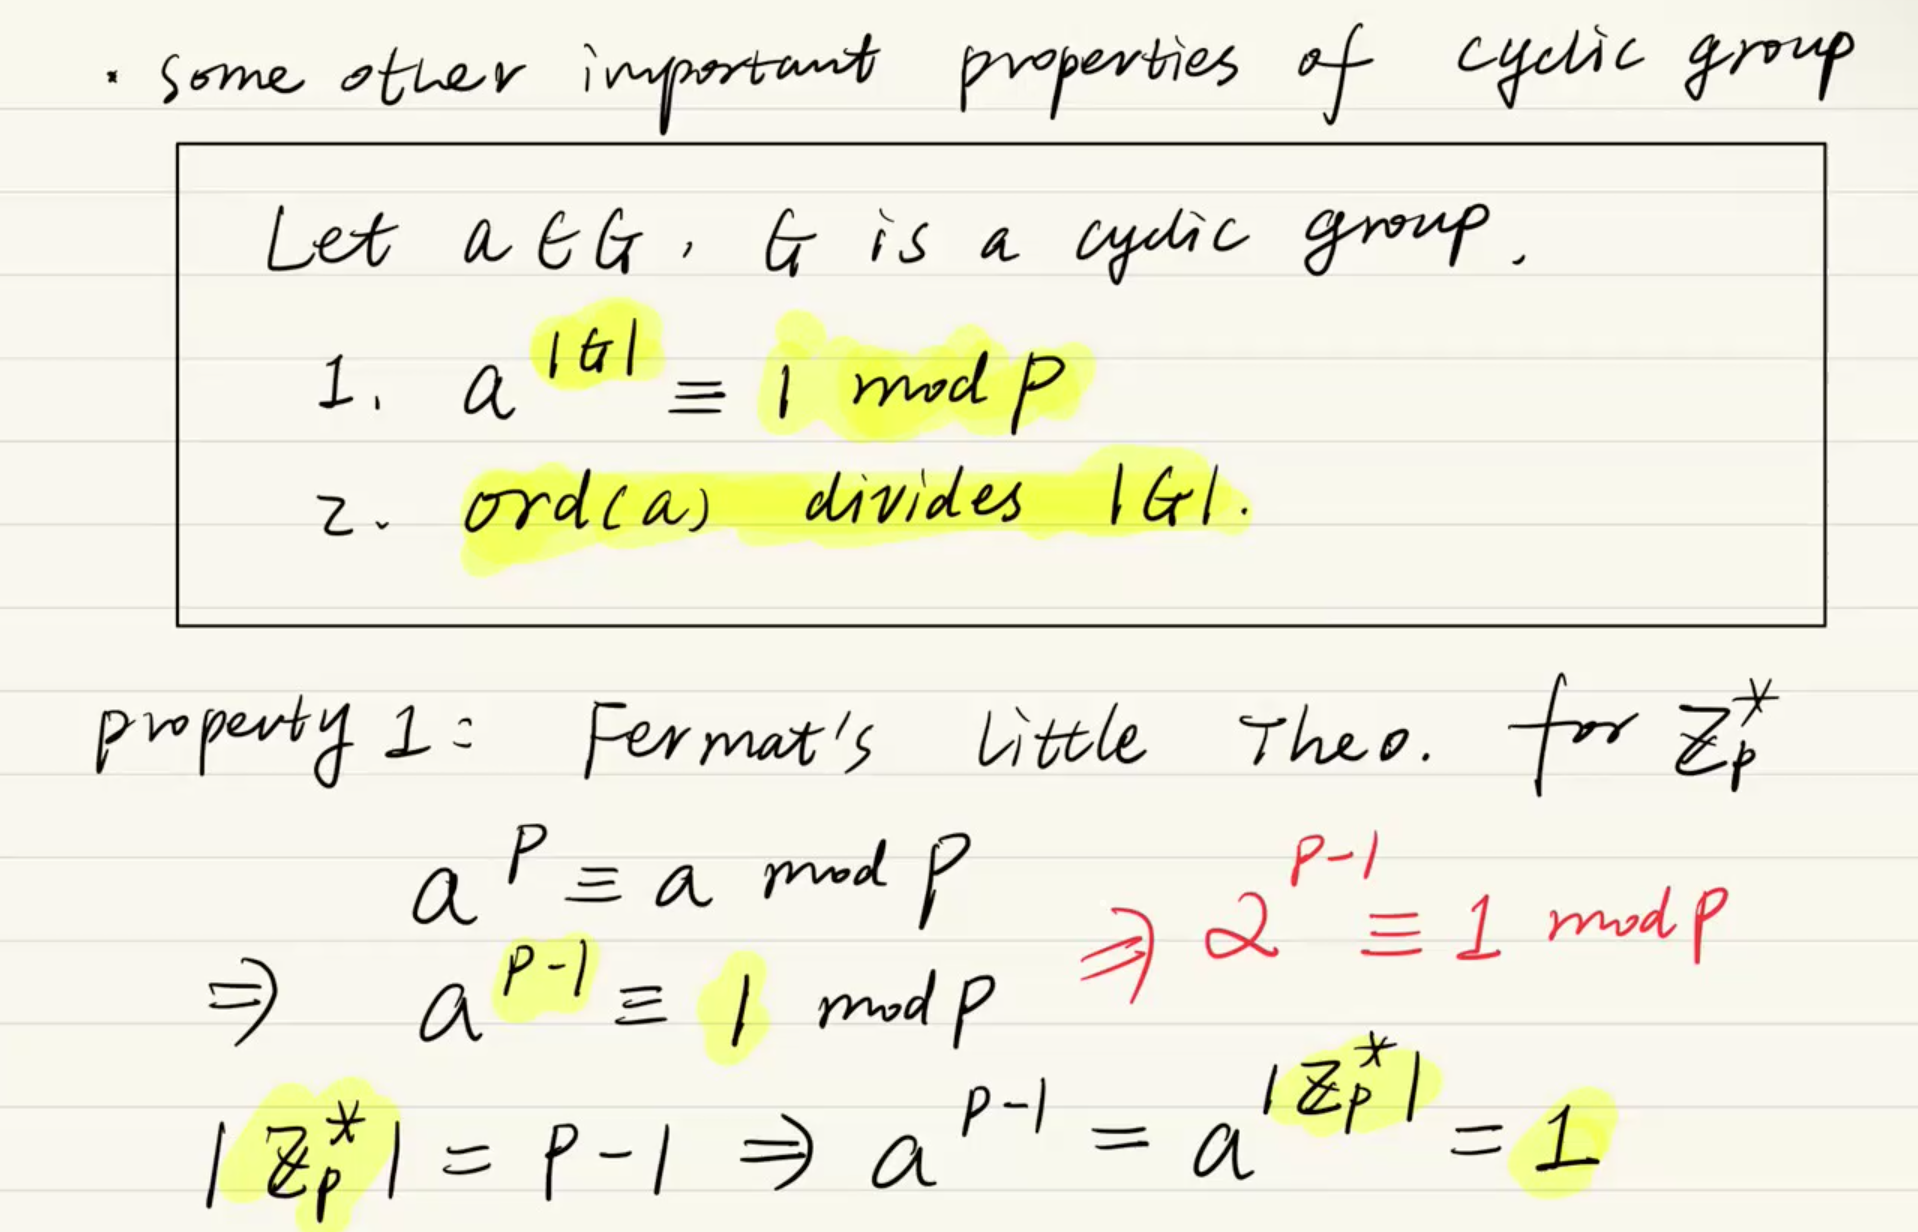 · some other important properties of cyclic group
Let a ∈ G, G is a cyclic group.
1. a^|G| ≡ 1 mod p
2. ord(a) divides |G|.
property 1: Fermat's Little Theo. for ℤ_p^*
a^p ≡ a mod p
⇒ a^(p-1) ≡ 1 mod p ⇒ 2^(p-1) ≡ 1 mod p
|ℤ_p^*| = p-1 ⇒ a^(p-1) = a^|ℤ_p^*| = 1